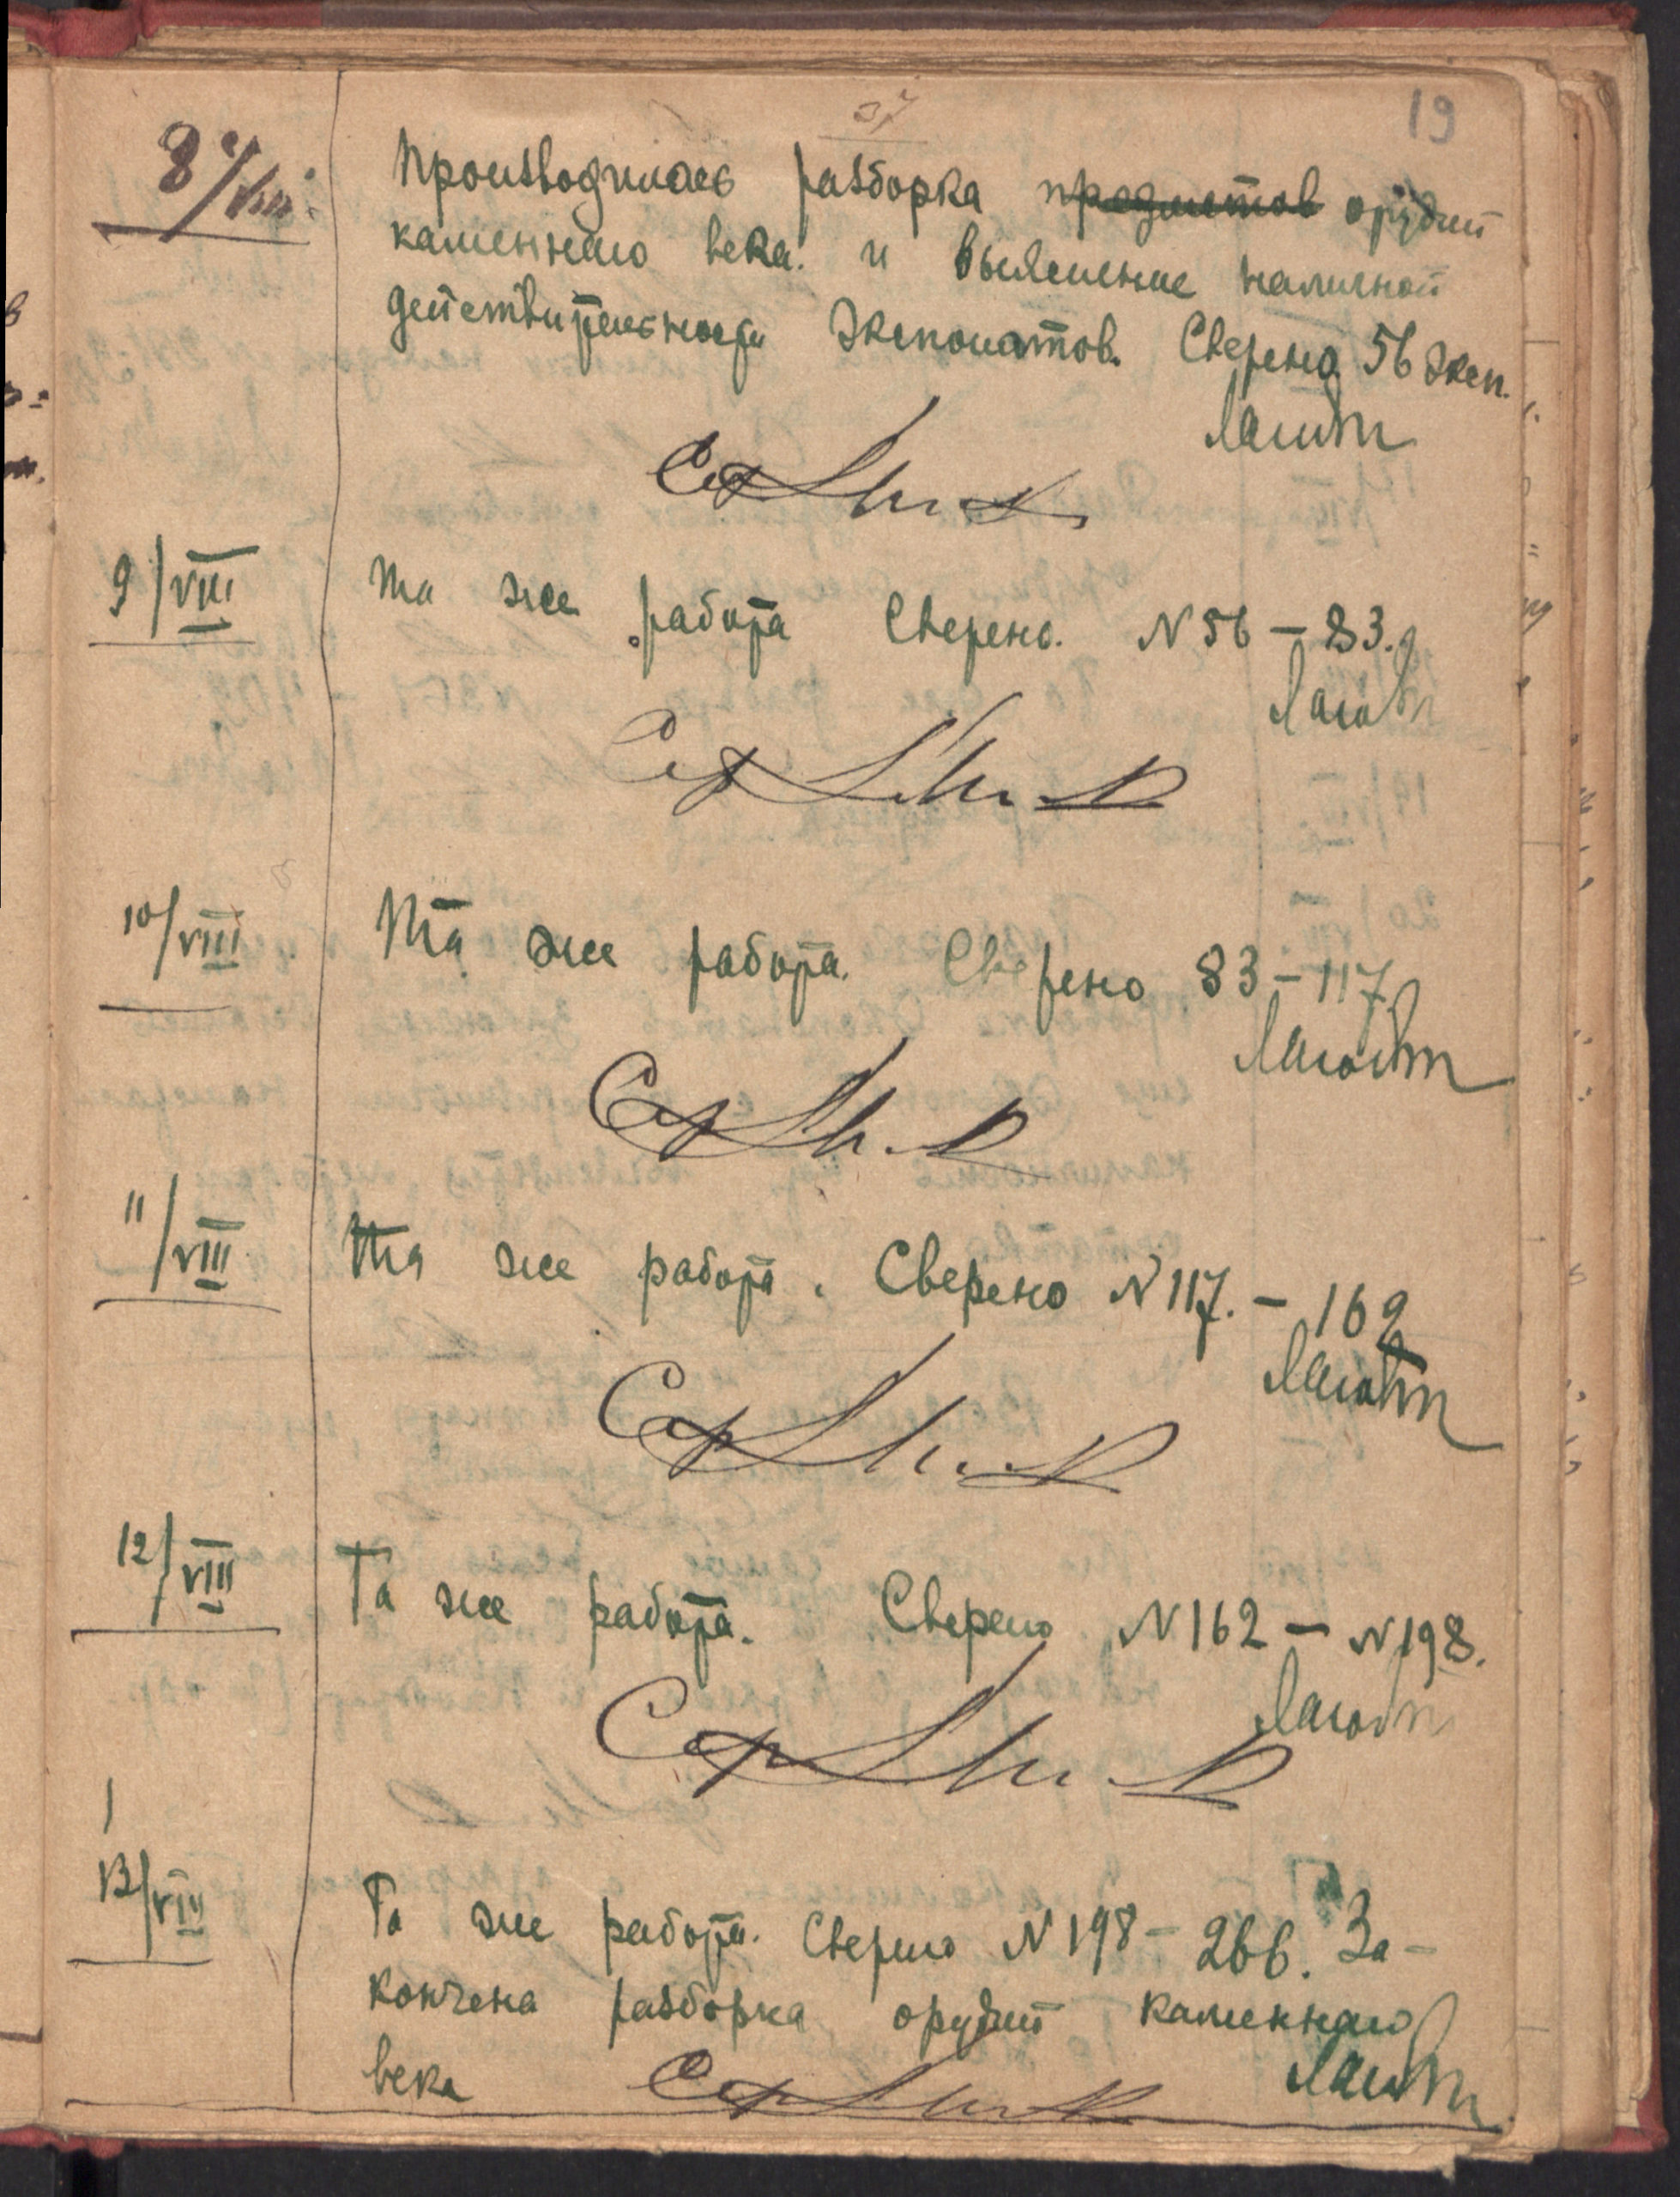 37
19
8/VIII
Производилась разборка предметов орудий
каменнаго века. и выяснение наличной
действительности экспонатов. Сверено 56 эксп.
9/VIII
та же работа Сверено. N 56 – 83.
10/VIII
Та же работа. Сверено 83 – 117.
11/VIII
Та же работа. Сверено N 117. – 162
12/VIII
Та же работа. Сверено N 162 – N 198.
13/VIII
Та же работа. Сверено N 198 – 266. За-
кончена разборка орудий каменнаго
века